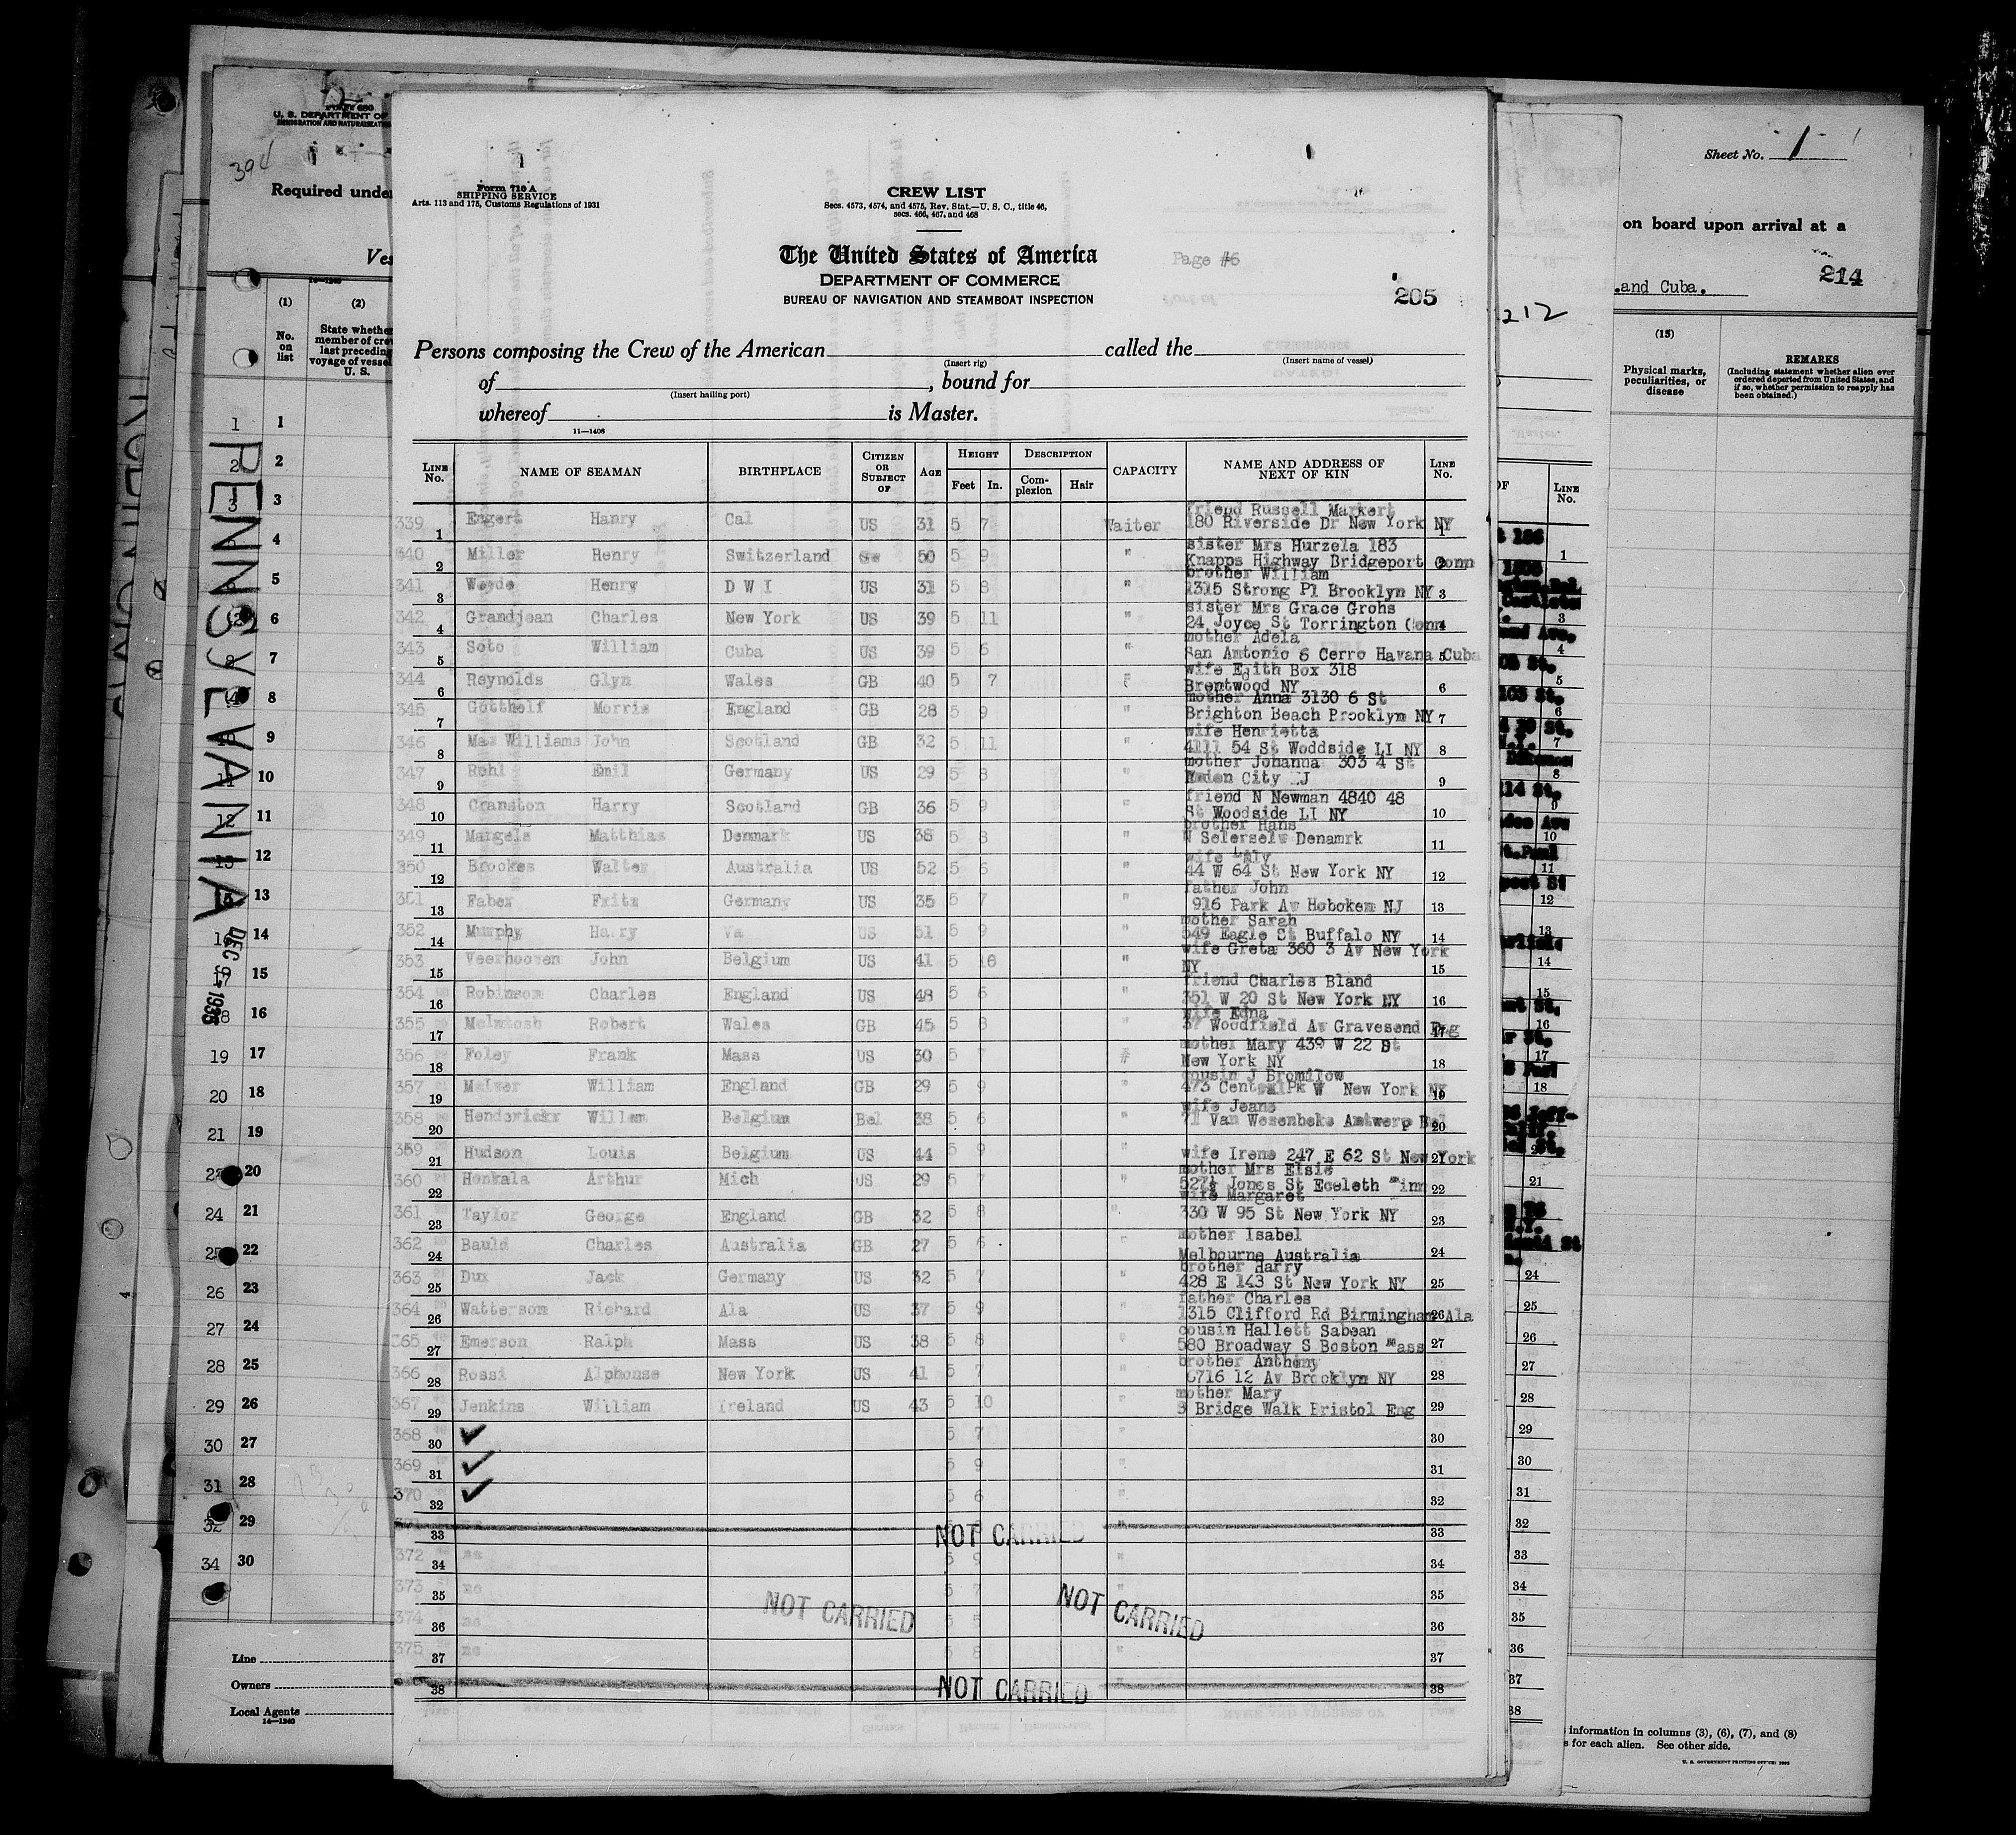 Form 710 A
SHIPPING SERVICE
Arts. 113 and 175, Customs Regulations of 1931
CREW LIST
Secs. 4573, 4574, and 4575, Rev. Stat.—U. S. C., title 46,
secs. 466, 467, and 468
The United States of America
DEPARTMENT OF COMMERCE
BUREAU OF NAVIGATION AND STEAMBOAT INSPECTION
Page #6
205
Persons composing the Crew of the American called the
(Insert rig) (Insert name of vessel)
of , bound for
(Insert hailing port)
whereof is Master.
11—1408
LINE No. NAME OF SEAMAN BIRTHPLACE CITIZEN OR SUBJECT OF AGE HEIGHT Feet In. DESCRIPTION Complexion Hair CAPACITY NAME AND ADDRESS OF NEXT OF KIN LINE No.
friend Russell Markert
339 1 Engert Harry Cal US 31 5 7 Waiter 180 Riverside Dr New York NY 1
sister Mrs Hurzela 183
340 2 Miller Henry Switzerland 50 5 9 " Knapps Highway Bridgeport Conn
brother William
341 3 Weyde Henry D W I US 31 5 8 " 1315 Strong Pl Brooklyn NY 3
sister Mrs Grace Grohs
342 4 Grandjean Charles New York US 39 5 11 " 24 Joyce St Torrington Conn
mother Adela
343 5 Soto William Cuba US 39 5 6 " San Antonio 6 Cerro Havana Cuba
wife Edith Box 318
344 6 Reynolds Glyn Wales GB 40 5 7 " Brentwood NY 6
mother Anna 3130 6 St
345 7 Gotthelf Morris England GB 28 5 9 " Brighton Beach Brooklyn NY 7
wife Henrietta
346 8 Mac Williams John Scotland GB 32 5 11 " 4111 54 St Woddside LI NY 8
mother Johanna 303 4 St
347 9 Ruhl Emil Germany US 29 5 8 " City NJ 9
friend N Newman 4840 48
348 10 Cranston Harry Scotland GB 36 5 9 " St Woodside LI NY 10
brother Hans
349 11 Margels Matthias Denmark US 38 5 8 " Denamrk 11
wife
350 12 Brookes Walter Australia US 52 5 6 " 44 W 64 St New York NY 12
father John
351 13 Faber Fritz Germany US 35 5 7 " 916 Park Av Hoboken NJ 13
mother Sarah
352 14 Murphy Harry Va US 51 5 9 " 549 Eagle St Buffalo NY 14
wife Greta 360 3 Av New York
353 15 Veerhooven John Belgium US 41 5 10 " NY 15
friend Charles Bland
354 16 Robinson Charles England US 48 5 6 " 351 W 20 St New York NY 16
wife Edna
355 17 McIntosh Robert Wales GB 45 5 8 " 37 Woodfield Av Gravesend Eng
mother Mary 439 W 22 St
356 18 Foley Frank Mass US 30 5 7 New York NY 18
cousin J Bromilow
357 19 McIver William England GB 29 5 9 " 473 Central Pk W New York NY
wife Jeans
358 20 Henderickx Willem Belgium Bel 38 5 6 " 71 Van Wesenbeke Antwerp Bel
359 21 Hudson Louis Belgium US 44 5 9 " wife Irene 247 E 62 St New York
mother Mrs Elsie
360 22 Honkala Arthur Mich US 29 5 7 " 527½ Jones St Eceleth Minn 22
wife Margaret
361 23 Taylor George England GB 32 5 8 " 330 W 95 St New York NY 23
mother Isabel
362 24 Bauld Charles Australia GB 27 5 6 " Melbourne Australia 24
brother Harry
363 25 Dux Jack Germany US 32 5 7 " 428 E 143 St New York NY 25
father Charles
364 26 Watterson Richard Ala US 37 5 9 " 1315 Clifford Rd Birmingham Ala
cousin Hallett Sabean
365 27 Emerson Ralph Mass US 38 5 8 " 580 Broadway S Boston Mass 27
brother Anthony
366 28 Rossi Alphonse New York US 41 5 7 " 6716 12 Av Brooklyn NY 28
mother Mary
367 29 Jenkins William Ireland US 43 5 10 " 3 Bridge Walk Bristol Eng 29
368 30 5 7 " 30
369 31 5 9 " 31
370 32 5 6 " 32
33 NOT CARRIED 33
372 34 no 5 9 " 34
373 35 no 5 7 " 35
NOT CARRIED NOT CARRIED
374 36 no 5 5 36
375 37 no 5 8 " 37
38 NOT CARRIED 38
394
U. S. DEPARTMENT OF
IMMIGRATION AND NATURALIZATION
Required under
Ves
(1) (2)
No. on list
State whether member of crew last preceding voyage of vessel U. S.
PENNSYLVANIA
DEC 1935
Line
Owners
Local Agents
14—1240
Sheet No. 1
on board upon arrival at a
214
and Cuba.
212
(15)
Physical marks, peculiarities, or disease
REMARKS
(Including statement whether alien ever ordered deported from United States, and if so, whether permission to reapply has been obtained.)
LINE No.
information in columns (3), (6), (7), and (8)
s for each alien. See other side.
U. S. GOVERNMENT PRINTING OFFICE